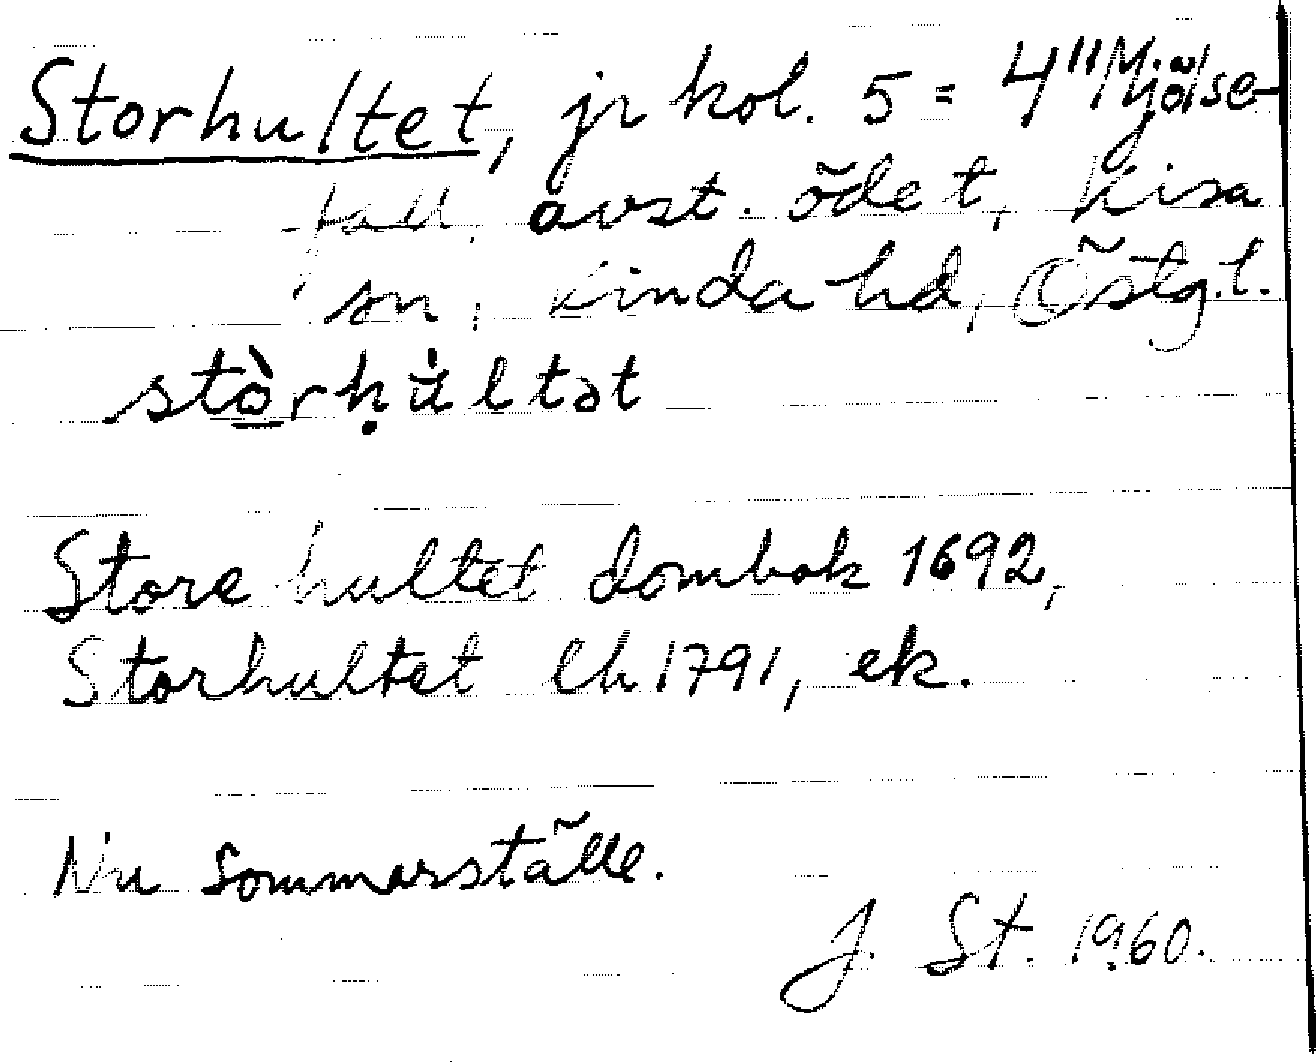 Storhultet, jr kol. 5 = 4" Mjölse-
fall, avst. ödet, Kisa
sn, Kinda hd, Östg.l.
stòrḥu̇ltət
Store hultet dombok 1692,
Storhultet lh 1791, ek.
Nu sommarställe.
J. St. 1960.